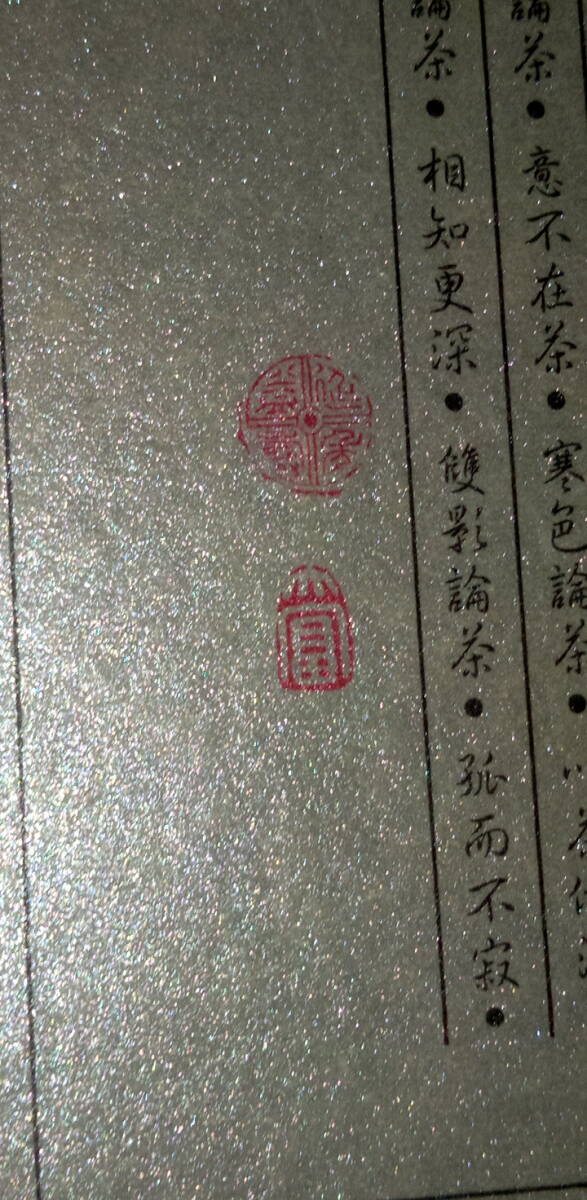 論茶·意不在茶·寒色論茶·以茶
論茶·相知更深·雙影論茶·孤而不寂·